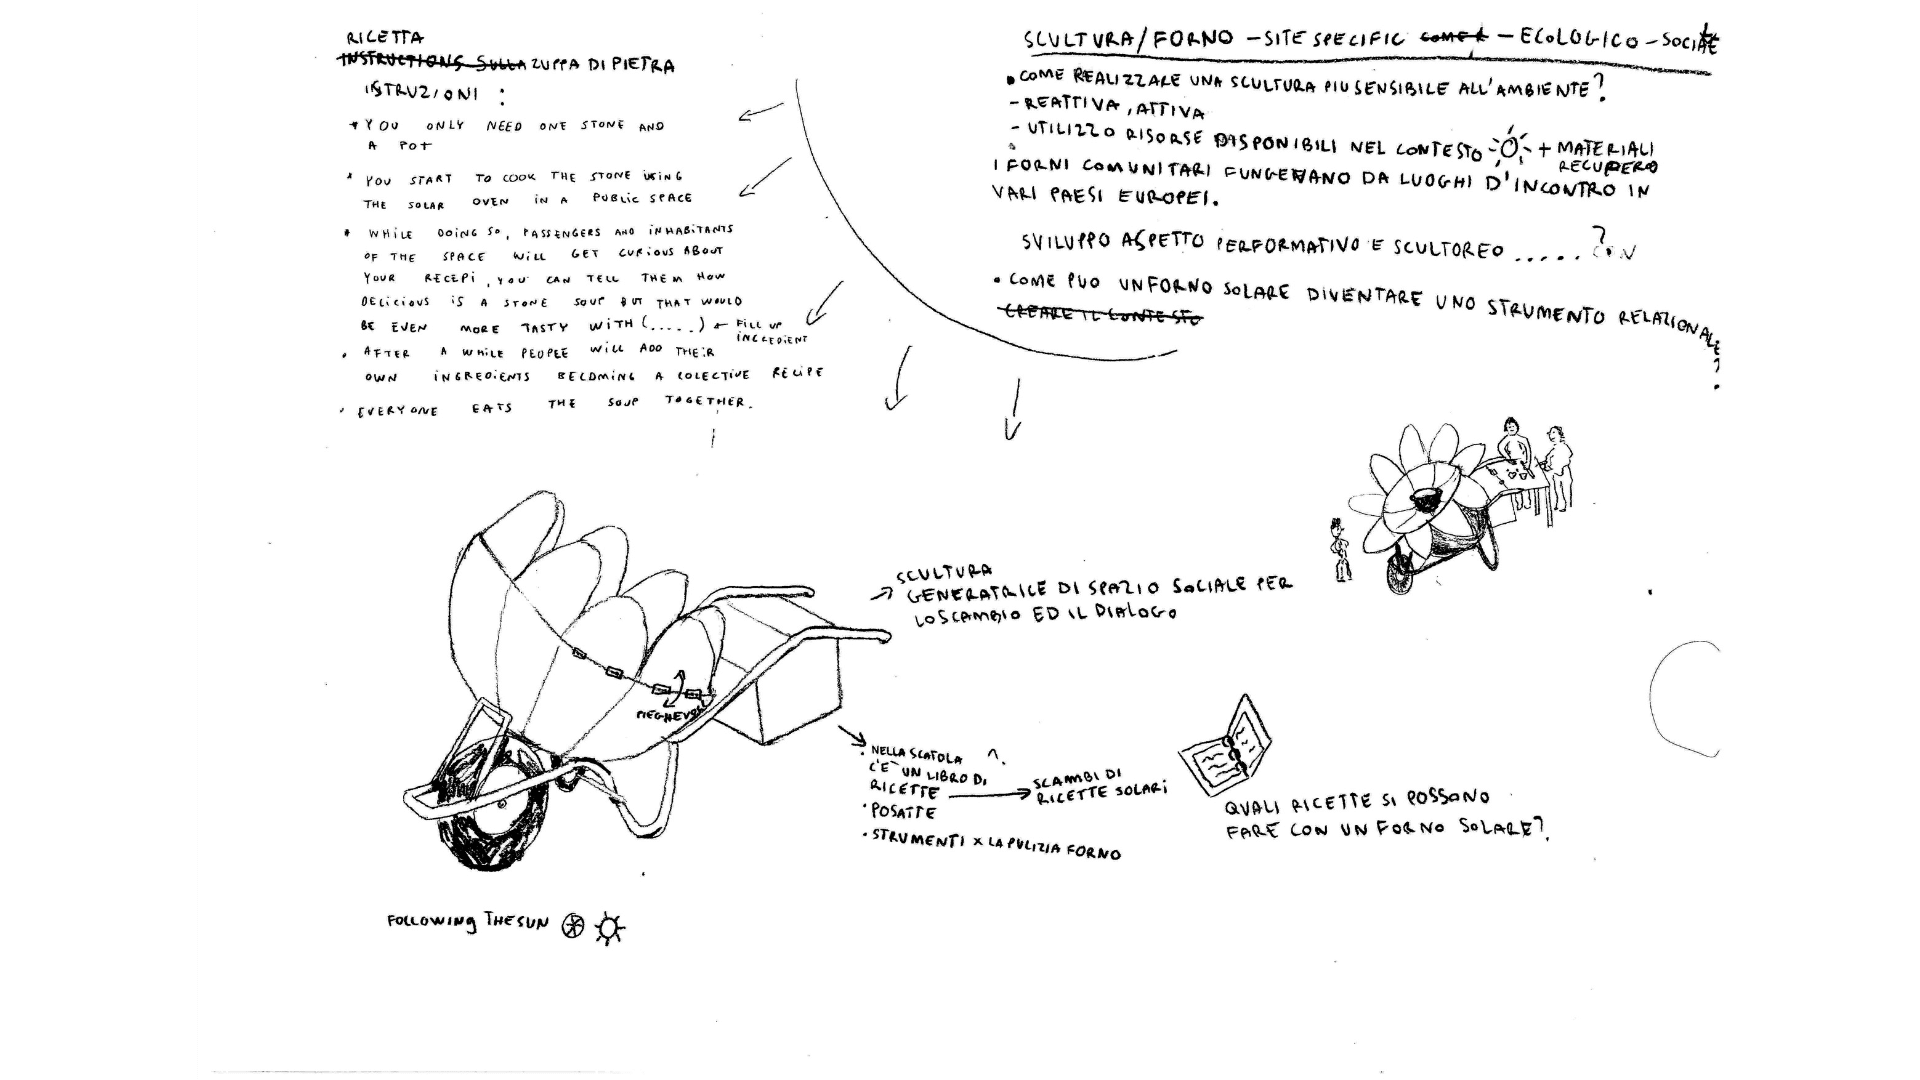 RICETTA
INSTRUCTIONS SULLA ZUPPA DI PIETRA
ISTRUZIONI :
YOU ONLY NEED ONE STONE AND
A POT
YOU START TO COOK THE STONE USING
THE SOLAR OVEN IN A PUBLIC SPACE
WHILE DOING SO, PASSENGERS AND INHABITANTS
OF THE SPACE WILL GET CURIOUS ABOUT
YOUR RECEPI, YOU CAN TELL THEM HOW
DELICIOUS IS A STONE SOUP BUT THAT WOULD
BE EVEN MORE TASTY WITH (.....) ← FILL UP
INGREDIENT
AFTER A WHILE PEOPLE WILL ADD THEIR
OWN INGREDIENTS BECOMING A COLECTIVE RECIPE
EVERYONE EATS THE SOUP TOGETHER.
SCULTURA/FORNO - SITE SPECIFIC COME - ECOLOGICO - SOCIALE
• COME REALIZZARE UNA SCULTURA PIU SENSIBILE ALL'AMBIENTE?
- REATTIVA, ATTIVA
- UTILIZZO RISORSE DISPONIBILI NEL CONTESTO + MATERIALI
RECUPERO
I FORNI COMUNITARI FUNGEVANO DA LUOGHI D'INCONTRO IN
VARI PAESI EUROPEI.
SVILUPPO ASPETTO PERFORMATIVO E SCULTOREO ..... CON ?
• COME PUO UN FORNO SOLARE DIVENTARE UNO STRUMENTO RELAZIONALE?
CREARE IL CONTESTO
SCULTURA
GENERATRICE DI SPAZIO SOCIALE PER
LO SCAMBIO ED IL DIALOGO
PIEGHEVOLI
• NELLA SCATOLA
C'E' UN LIBRO DI
RICETTE → SCAMBI DI
RICETTE SOLARI
• POSATE
• STRUMENTI X LA PULIZIA FORNO
QUALI RICETTE SI POSSONO
FARE CON UN FORNO SOLARE?
FOLLOWING THE SUN